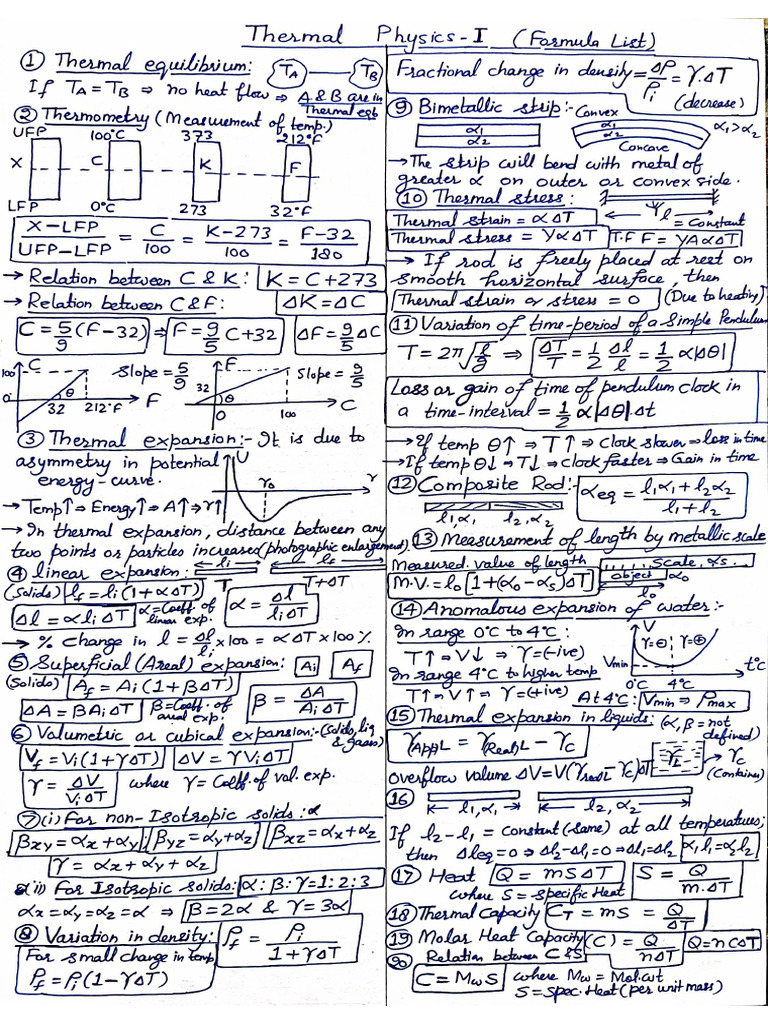 Thermal Physics-I (Formula List)
① Thermal equilibrium: T_A T_B
If T_A = T_B ⇒ no heat flow ⇒ A & B are in Thermal eqb
② Thermometry (Measurement of temp.)
UFP 100°C 373 212°F
X C K F
LFP 0°C 273 32°F
(X-LFP)/(UFP-LFP) = C/100 = (K-273)/100 = (F-32)/180
→ Relation between C & K: K = C+273
→ Relation between C & F: ΔK = ΔC
C = 5/9 (F-32) ⇒ F = 9/5 C+32 ΔF = 9/5 ΔC
100 C slope = 5/9 F slope = 9/5
0 θ 32 212°F F 32 θ 0 100 C
③ Thermal expansion:- It is due to
asymmetry in potential
energy-curve. U r₀ r
→ Temp↑ ⇒ Energy↑ ⇒ A↑ ⇒ r↑
→ In thermal expansion, distance between any
two points or particles increases (photographic enlargement).
④ linear expansion: l_i l_f
(Solids) l_f = l_i (1+αΔT) T T+ΔT
Δl = α l_i ΔT α = Coeff. of linear exp. α = Δl/(l_i ΔT)
→ % change in l = Δl/l_i ×100 = αΔT×100%
⑤ Superficial (Areal) expansion: A_i A_f
(Solids) A_f = A_i (1+βΔT)
ΔA = βA_iΔT β = Coeff. of areal exp. β = ΔA/(A_iΔT)
⑥ Volumetric or cubical expansion:- (Solids, liq & gases)
V_f = V_i (1+γΔT) ΔV = γV_iΔT
γ = ΔV/(V_iΔT) where γ = Coeff. of vol. exp.
⑦ (i) For non-Isotropic solids: α
β_xy = α_x+α_y β_yz = α_y+α_z β_xz = α_x+α_z
γ = α_x + α_y + α_z
ii) For Isotropic solids: α:β:γ = 1:2:3
α_x = α_y = α_z = α ⇒ β = 2α & γ = 3α
⑧ Variation in density: ρ_f = ρ_i/(1+γΔT)
For small change in temp
ρ_f = ρ_i (1-γΔT)
Fractional change in density = Δρ/ρ_i = γ.ΔT
(decrease)
⑨ Bimetallic strip:- Convex
α₁ α₂ α₁ α₂ α₁ > α₂
Concave
→ The strip will bend with metal of
greater α on outer or convex side.
⑩ Thermal stress:
Thermal strain = αΔT Y l = Constant
Thermal stress = YαΔT T.F F = YAαΔT
→ If rod is freely placed at rest on
smooth horizontal surface, then
Thermal strain or stress = 0 (Due to heating)
⑪ Variation of time-period of a simple Pendulum
T = 2π√(l/g) ⇒ ΔT/T = 1/2 Δl/l = 1/2 α|Δθ|
Loss or gain of time of pendulum clock in
a time-interval = 1/2 α|Δθ|.Δt
→ If temp θ↑ ⇒ T↑ ⇒ Clock slower ⇒ lose in time
→ If temp θ↓ ⇒ T↓ ⇒ Clock faster ⇒ Gain in time
⑫ Composite Rod:- α_eq = (l₁α₁ + l₂α₂)/(l₁+l₂)
l₁,α₁ l₂,α₂
⑬ Measurement of length by metallic scale
Measured value of length Scale, α_s.
M.V. = l₀ [1+(α₀-α_s)ΔT] object α₀
l₀
⑭ Anomalous expansion of water:-
In range 0°C to 4°C: V
T↑ ⇒ V↓ ⇒ γ = (-ive) γ=⊖ γ=⊕
V_min
In range 4°C to higher temp 0°C 4°C t°C
T↑ ⇒ V↑ ⇒ γ = (+ive) At 4°C: V_min ⇒ ρ_max
⑮ Thermal expansion in liquids: (α, β = not defined)
γ_(App)L = γ_(Real)L - γ_C
γ_L γ_C
Overflow volume ΔV = V(γ_real - γ_C)ΔT (Container)
⑯ l₁,α₁ l₂,α₂
If l₂-l₁ = constant (same) at all temperatures;
then Δleq = 0 ⇒ Δl₂-Δl₁ = 0 ⇒ Δl₁ = Δl₂ α₁l₁ = α₂l₂
⑰ Heat Q = mSΔT S = Q/(m.ΔT)
where S = specific Heat
⑱ Thermal Capacity C_T = mS = Q/ΔT
⑲ Molar Heat Capacity (C) = Q/(nΔT) Q = nCΔT
⑳ Relation between C & S
C = M_w S where M_w = Mol. wt
S = Spec. Heat (per unit mass)